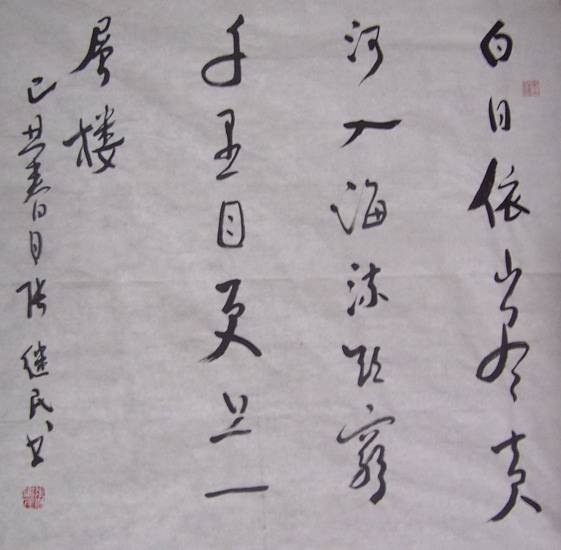 白日依山尽黄
河入海流欲穷
千里目更上一
層楼
己丑春月张继民书